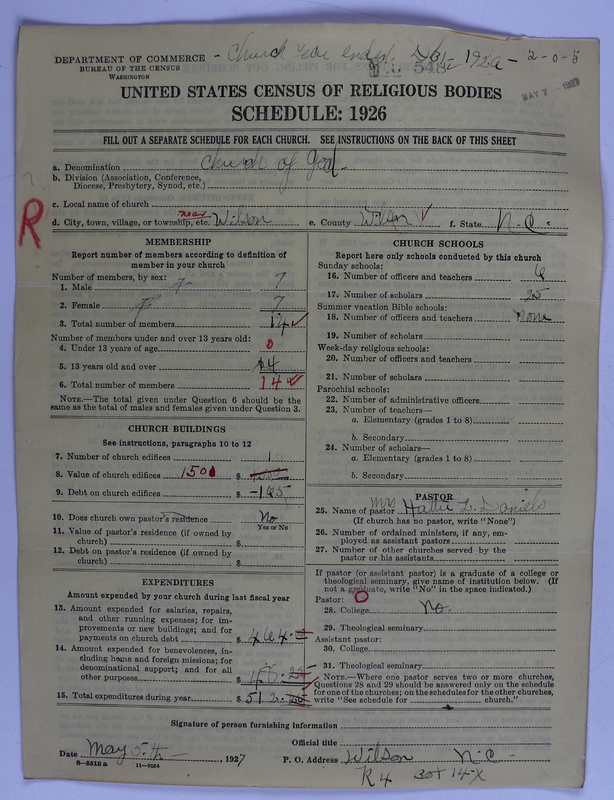 DEPARTMENT OF COMMERCE - Church Year ended 1926 - 2-0-5
BUREAU OF THE CENSUS
WASHINGTON
548
MAY 7 - 1927
UNITED STATES CENSUS OF RELIGIOUS BODIES
SCHEDULE: 1926
FILL OUT A SEPARATE SCHEDULE FOR EACH CHURCH. SEE INSTRUCTIONS ON THE BACK OF THIS SHEET
a. Denomination Church of God.
b. Division (Association, Conference, Diocese, Presbytery, Synod, etc.)
c. Local name of church
R
d. City, town, village, or township, etc. near Wilson e. County Wilson f. State N.C.
MEMBERSHIP
Report number of members according to definition of
member in your church
Number of members, by sex:
1. Male 7 7
2. Female 7 7
3. Total number of members 14
Number of members under and over 13 years old:
4. Under 13 years of age 0
5. 13 years old and over 14
6. Total number of members 14
NOTE.—The total given under Question 6 should be
same as the total of males and females given under Question 3.
CHURCH BUILDINGS
See instructions, paragraphs 10 to 12
7. Number of church edifices 1
8. Value of church edifices 1500 $
9. Debt on church edifices $ 165
10. Does church own pastor's residence No
Yes or No
11. Value of pastor's residence (if owned by
church) $
12. Debt on pastor's residence (if owned by
church) $
EXPENDITURES
Amount expended by your church during last fiscal year
13. Amount expended for salaries, repairs,
and other running expenses; for im-
provements or new buildings; and for
payments on church debt $ 464
14. Amount expended for benevolences, in-
cluding home and foreign missions; for
denominational support; and for all
other purposes $ 48
15. Total expenditures during year $ 512
CHURCH SCHOOLS
Report here only schools conducted by this church
Sunday schools:
16. Number of officers and teachers 6
17. Number of scholars 35
Summer vacation Bible schools:
18. Number of officers and teachers None
19. Number of scholars
Week-day religious schools:
20. Number of officers and teachers
21. Number of scholars
Parochial schools:
22. Number of administrative officers
23. Number of teachers—
a. Elementary (grades 1 to 8)
b. Secondary
24. Number of scholars—
a. Elementary (grades 1 to 8)
b. Secondary
PASTOR
25. Name of pastor Mrs Hattie L. Daniels
(If church has no pastor, write "None")
26. Number of ordained ministers, if any, em-
ployed as assistant pastors
27. Number of other churches served by the
pastor or his assistants
If pastor (or assistant pastor) is a graduate of a college or
theological seminary, give name of institution below. (If
not a graduate, write "No" in the space indicated.)
Pastor: O
28. College No.
29. Theological seminary
Assistant pastor:
30. College
31. Theological seminary
NOTE.—Where one pastor serves two or more churches,
Questions 28 and 29 should be answered only on the schedule
for one of the churches; on the schedules for the other churches,
write "See schedule for church."
Signature of person furnishing information
Official title
Date May 5th, 1927 P. O. Address Wilson N.C.
8-5518a 11-9034
R 4 Box 14-X